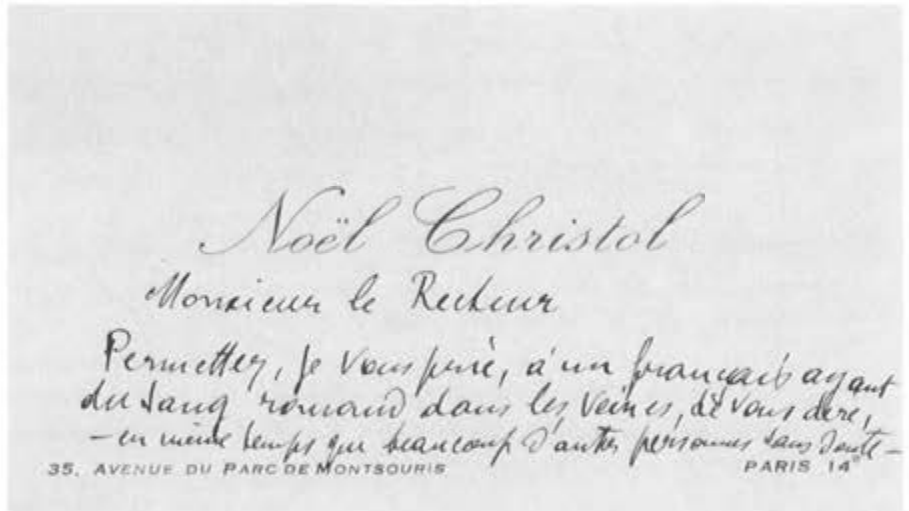 Noël Christol
Monsieur le Recteur
Permettez, je vous prie, à un français ayant
du sang romand dans les veines, de vous dire,
– en même temps que beaucoup d'autres personnes sans doute –
35, AVENUE DU PARC DE MONTSOURIS PARIS 14e